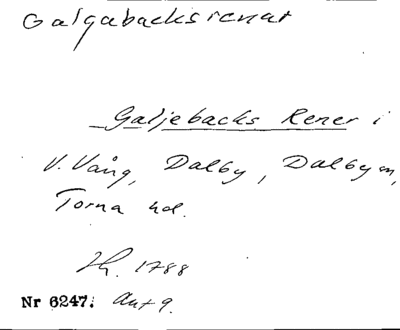 Galgabacksrenar
Galjebacks Rener i
V. Vång, Dalby, Dalby sn,
Torna hd.
Lh. 1788
Nr 6247. Akt 9.